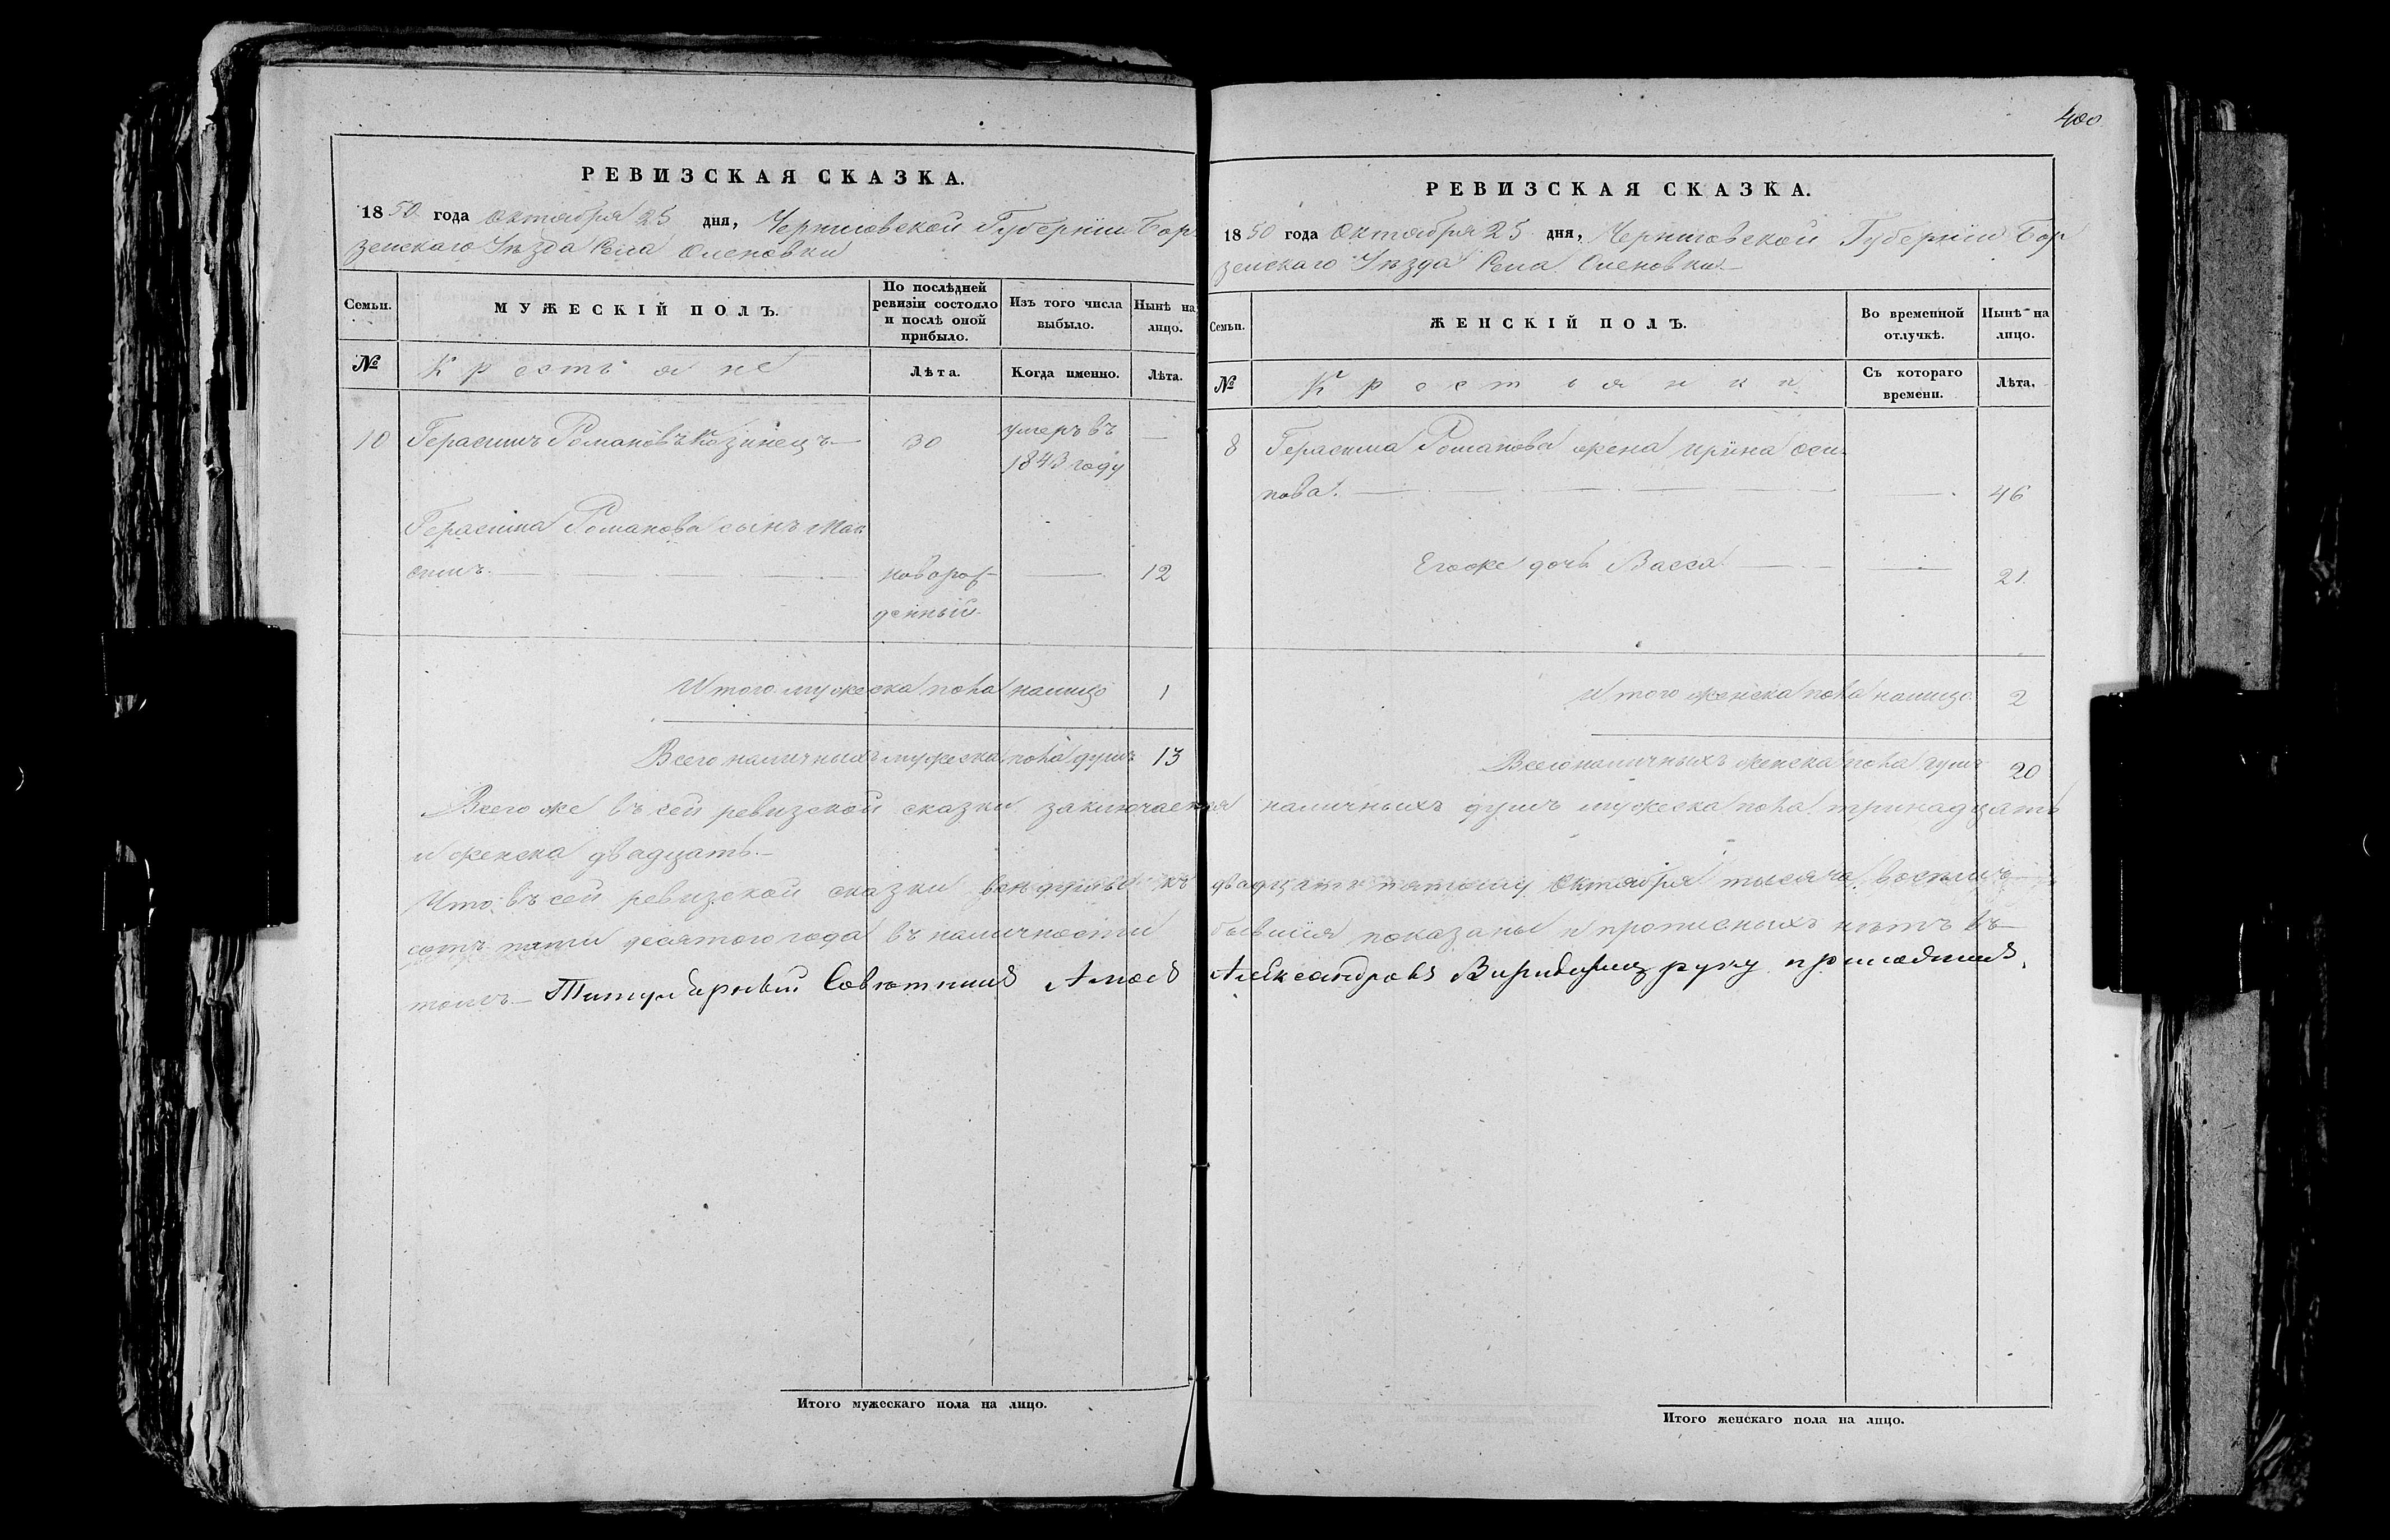 РЕВИЗСКАЯ СКАЗКА.
1850 года Октября 25 дня, Черниговской Губерніи Бор
зенскаго Уѣзда Села Оленовки
Семьи.
МУЖЕСКІЙ ПОЛЪ.
По послѣдней
ревизіи состояло
и послѣ оной
прибыло.
Изъ того числа
выбыло.
Нынѣ на
лицо.
№
Крестьяне
Лѣта.
Когда именно.
Лѣта.
10 Герасимъ Романовъ Козинецъ 30 умеръ въ
1843 году
Герасима Романова сынъ Мак
симъ. новорож- 12
денный
Итого мужеска пола налицо 1
Всего наличныхъ мужеска пола душъ 13
400
РЕВИЗСКАЯ СКАЗКА.
1850 года Октября 25 дня, Черниговской Губерніи Бор
зенскаго Уѣзда Села Оленовки
Семьи.
ЖЕНСКІЙ ПОЛЪ.
Во временной
отлучкѣ.
Нынѣ на
лицо.
№
Крестьянки
Съ котораго
времени.
Лѣта.
8 Герасима Романова жена Ирина Оси
пова. 46
Егоже дочь Васса 21
Итого женска пола налицо 2
Всего наличныхъ женска пола душъ 20
Всего же въ сей ревизской сказки заключается наличныхъ душъ мужеска пола тринадцать
и женска двадцать.
Что въ сей ревизской сказки всѣ души къ двадцать пятому Октября тысяча восемь
сотъ пяти десятого года въ наличности бывшія показаны и прописныхъ нѣтъ въ
томъ Титулярный Совѣтникъ Александровъ руку приложилъ.
Итого мужескаго пола на лицо.
Итого женскаго пола на лицо.